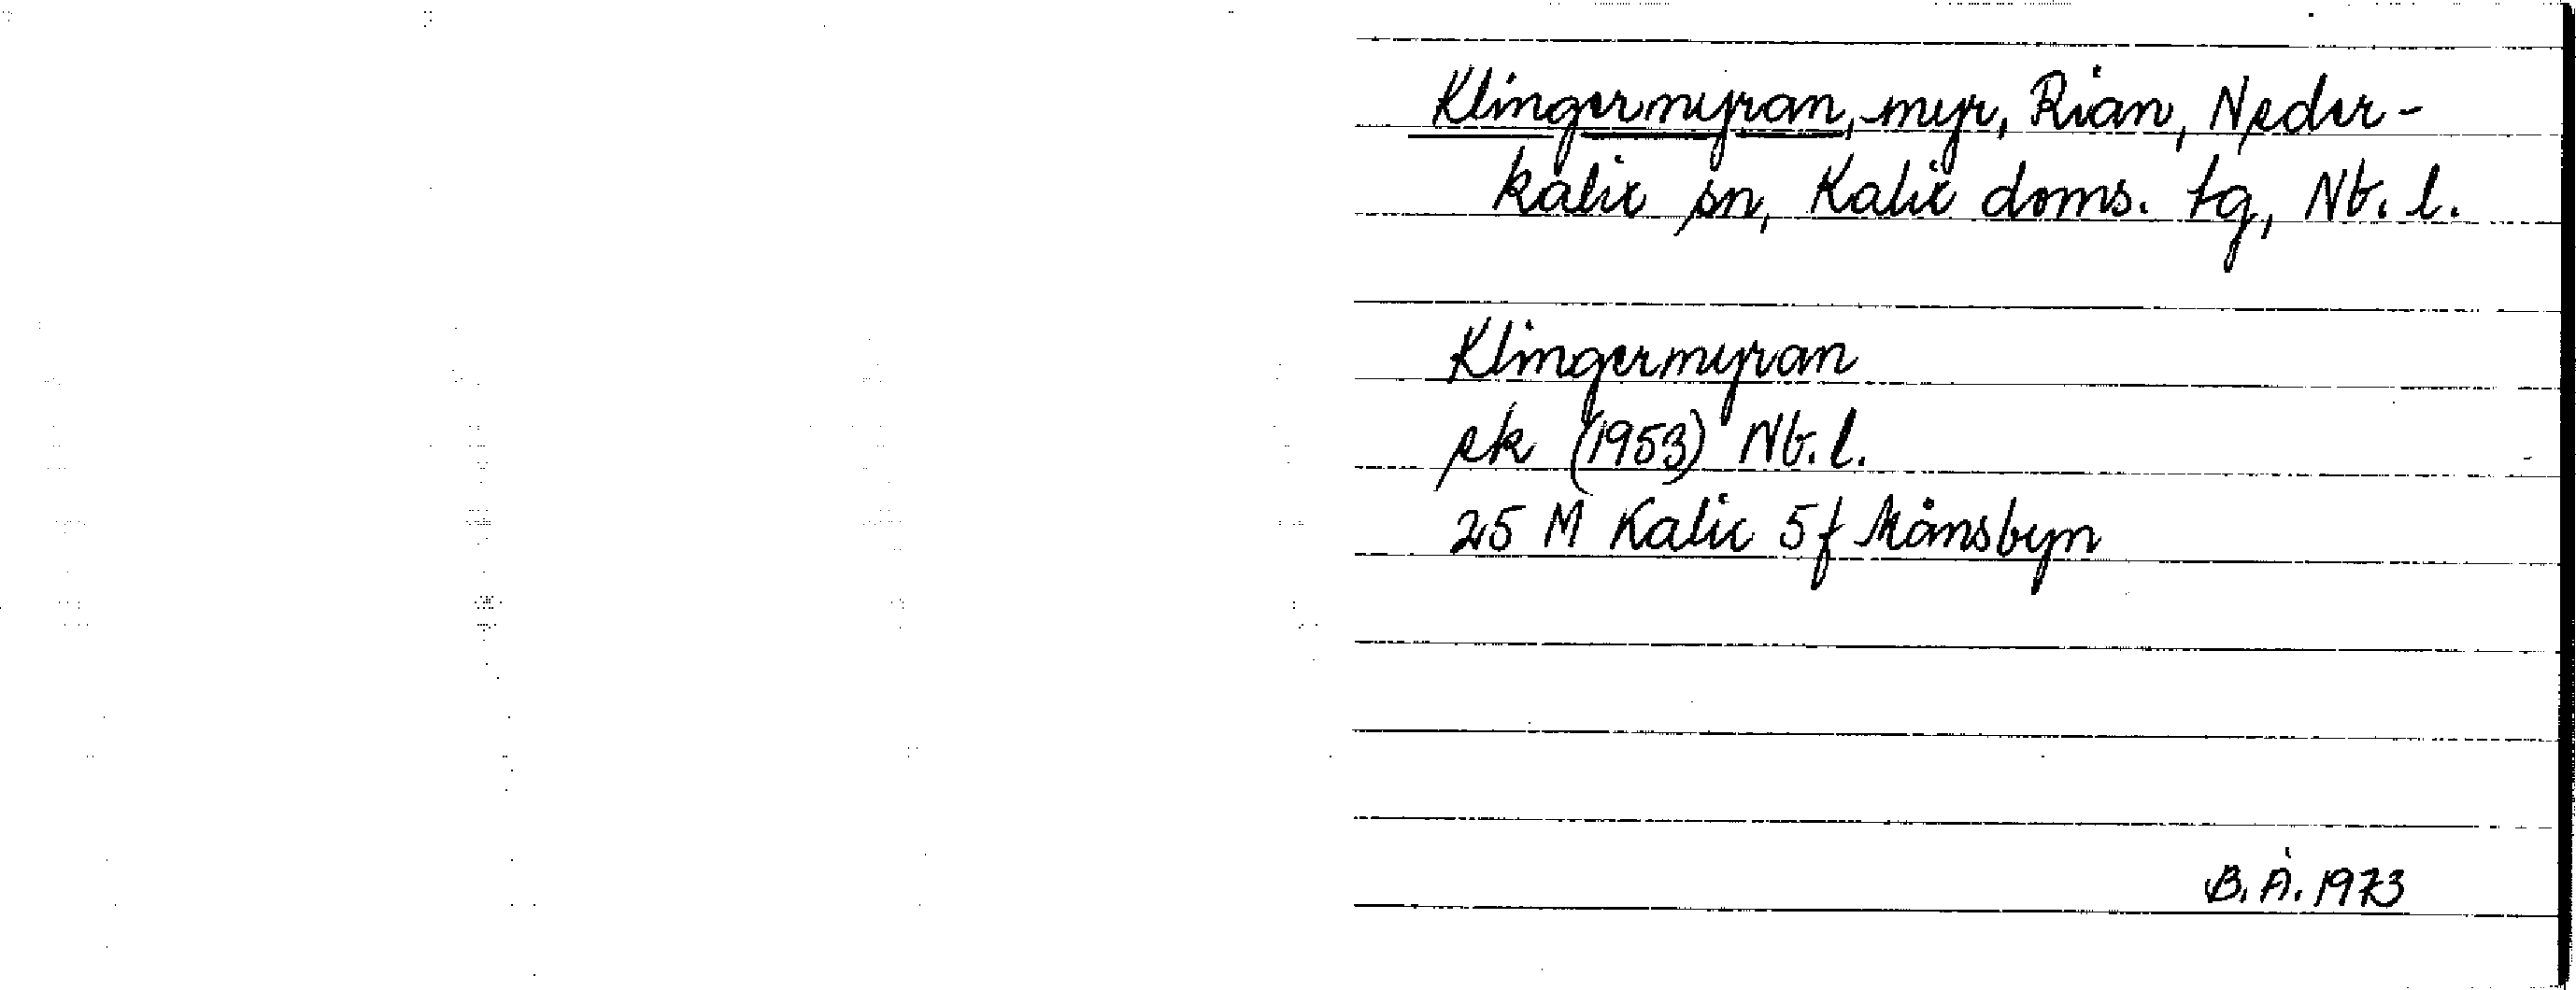 Klingermyran, myr, Rian, Neder-
kalix sn, Kalix doms. tg, Nb. l.
Klingermyran
ek (1953) Nb. l.
25 M Kalix 5f Månsbyn
B. Å. 1973